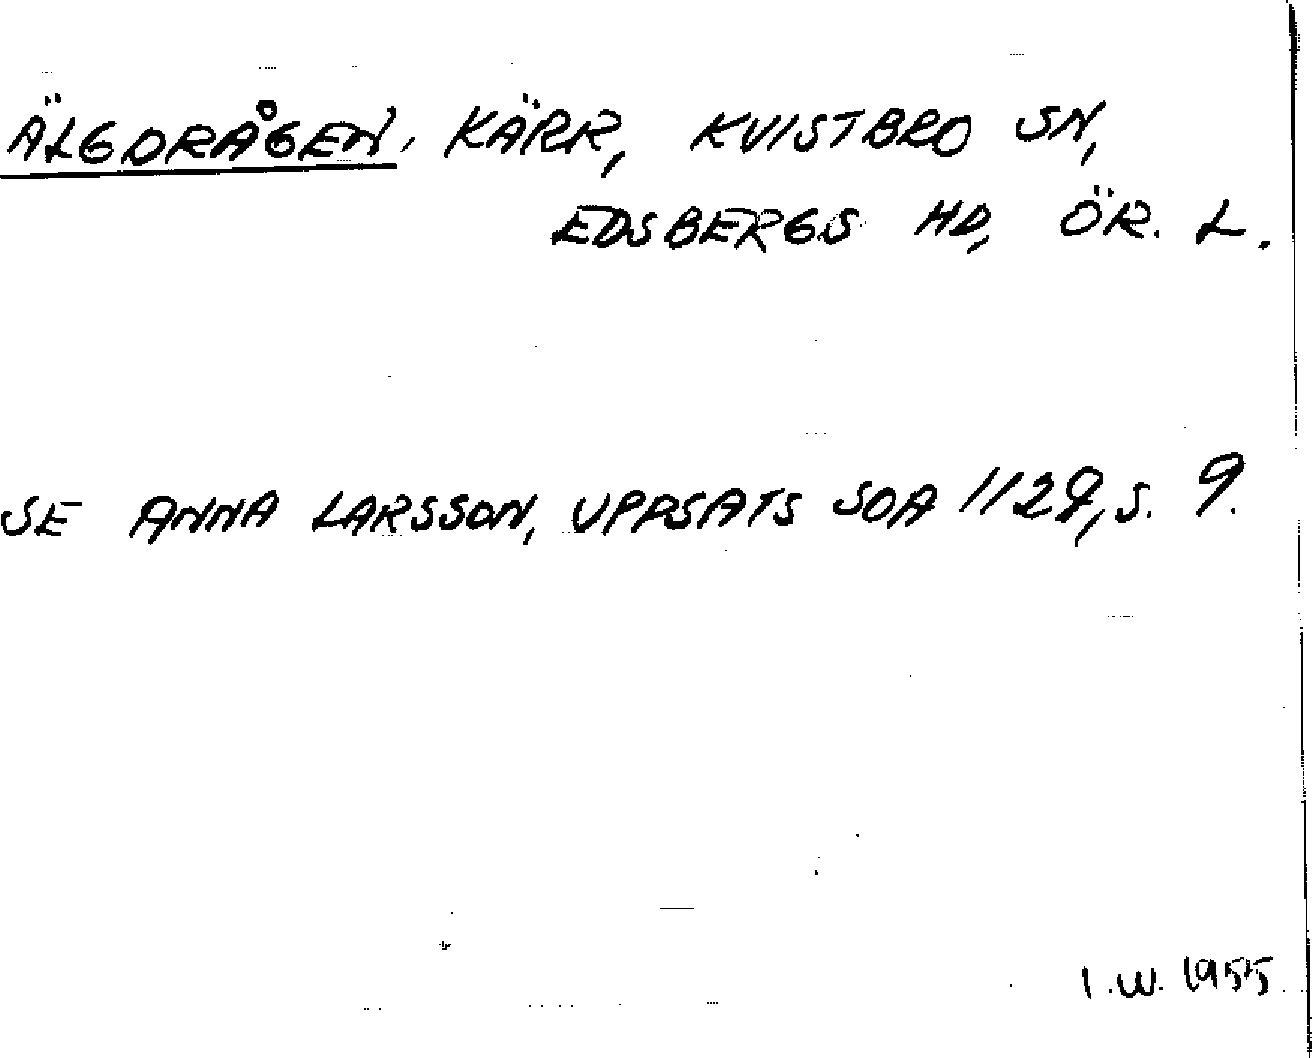 ÄLGDRÅGEN, KÄRR, KVISTBRO SN,
EDSBERGS HD, ÖR. L.
SE ANNA LARSSON, UPPSATS SOA 1129, S. 9.
I.W. 1955